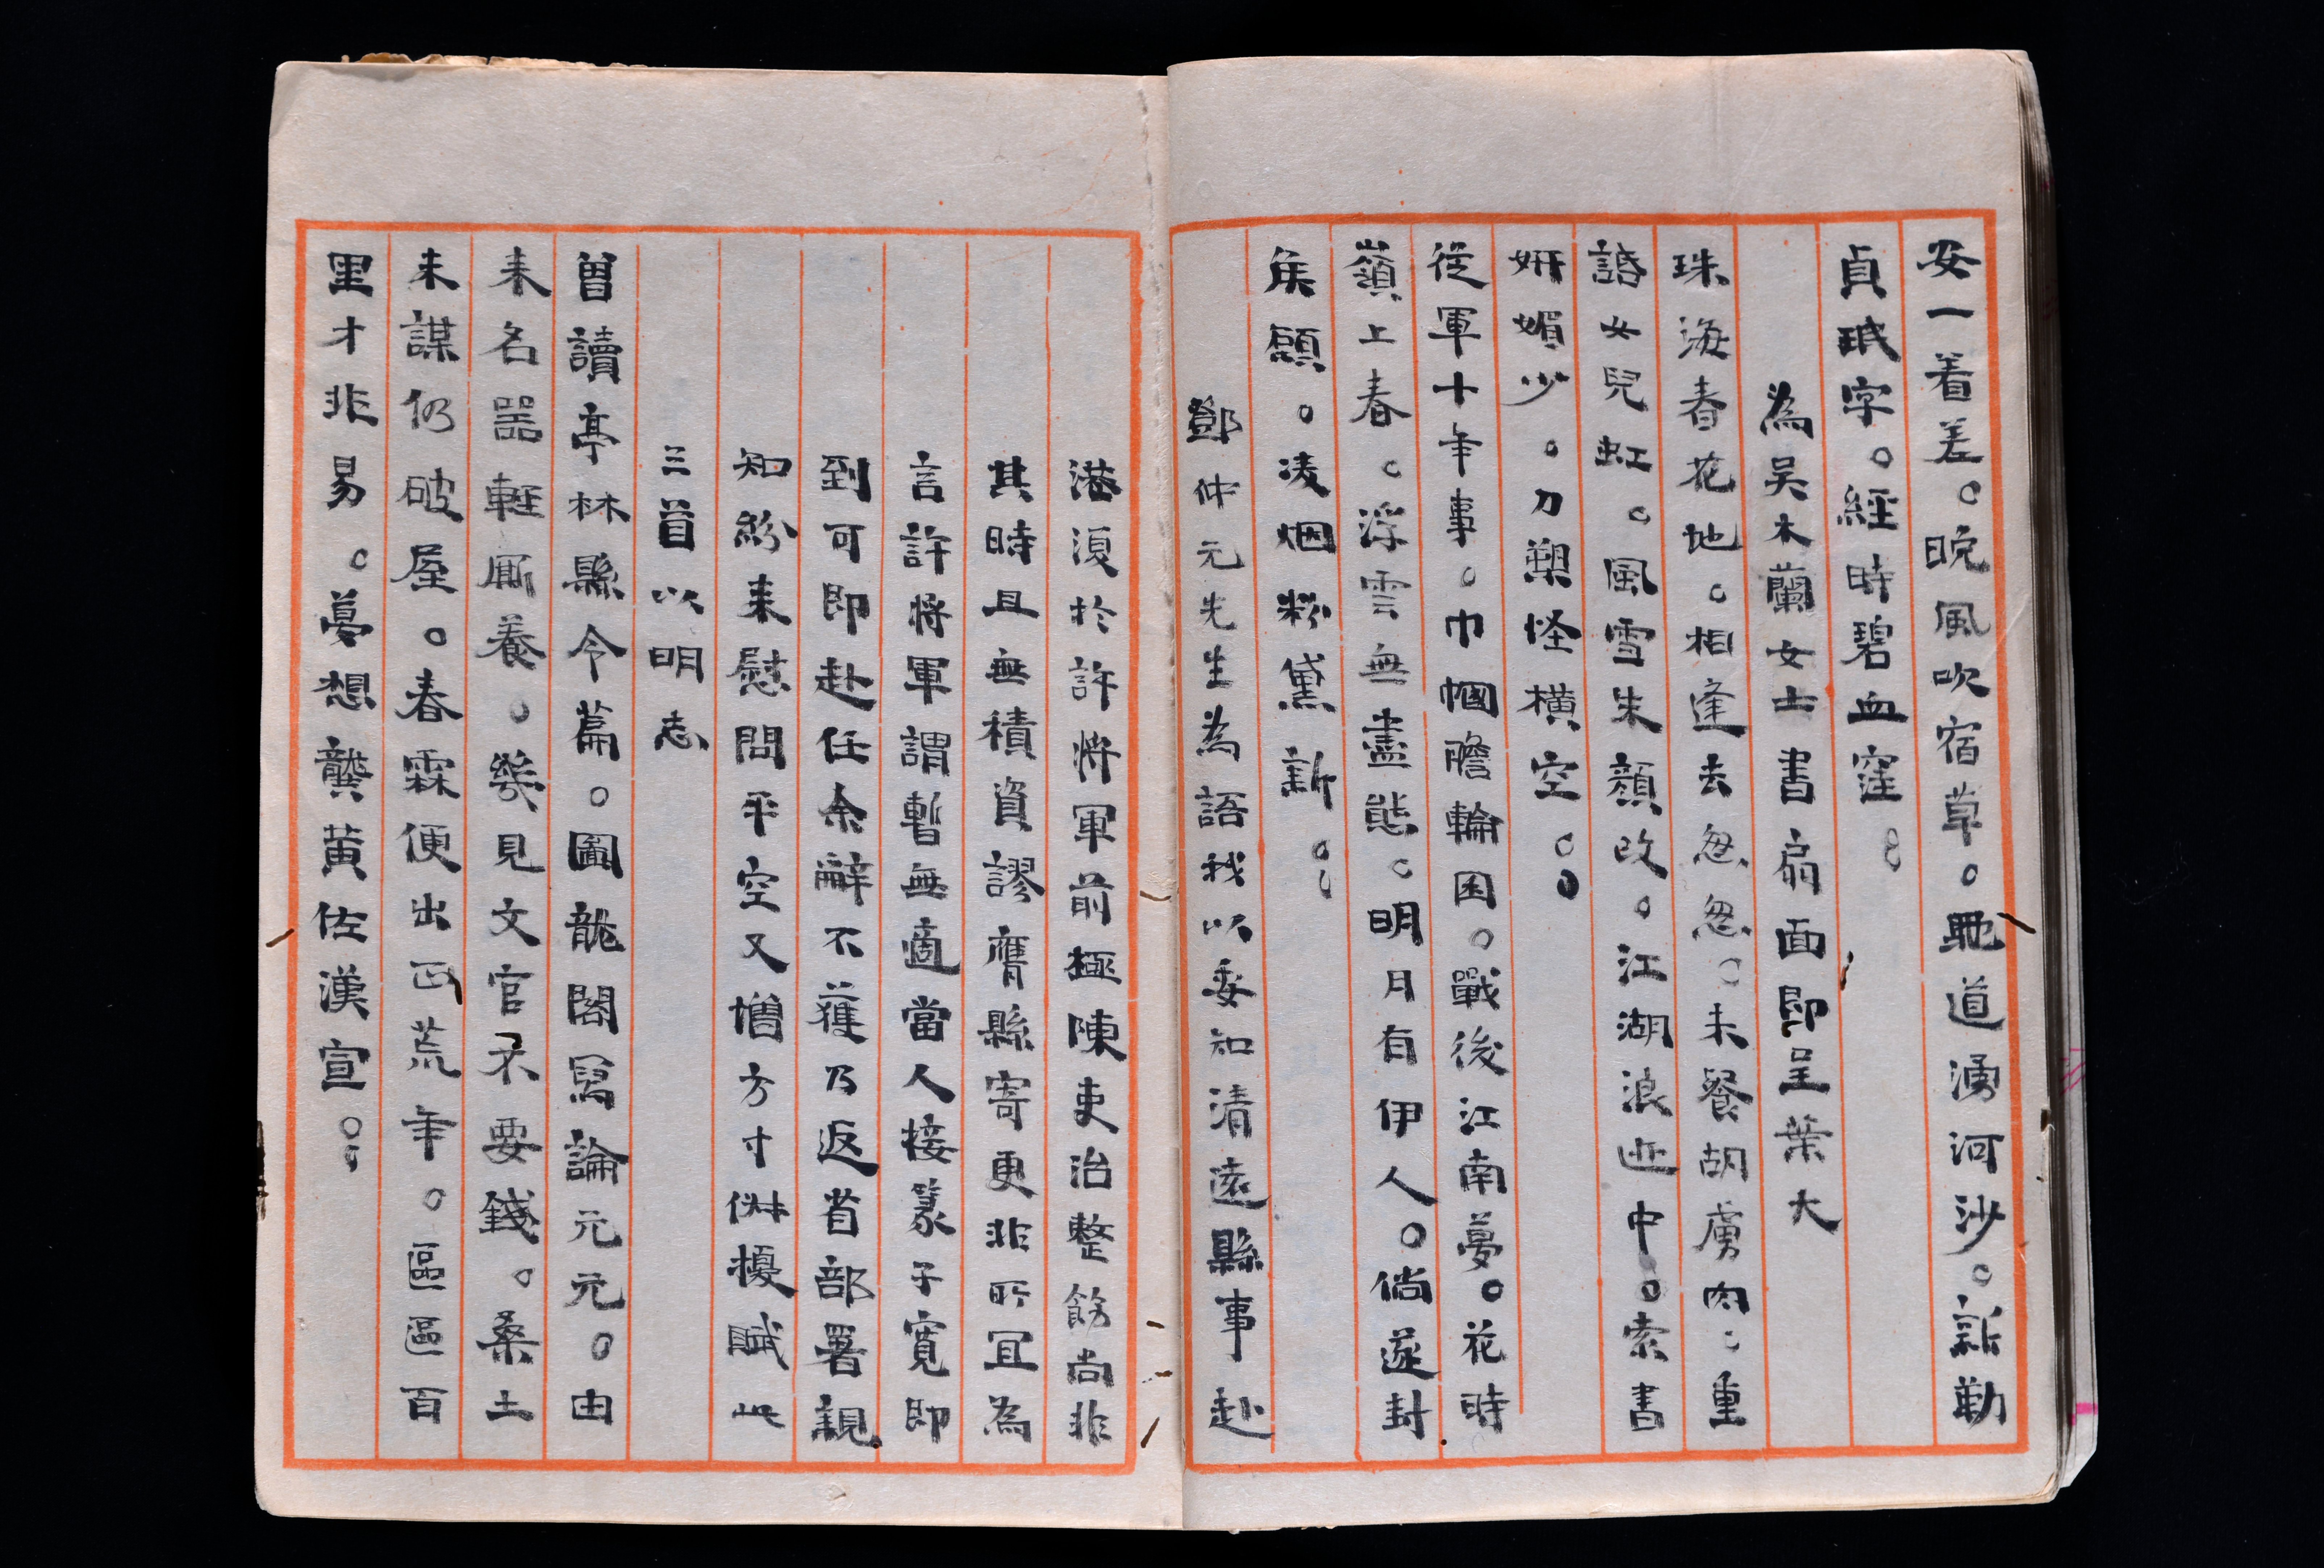 安一着差。晚風吹宿草。𨒪道湧河沙。新勒
貞珉字。經時碧血窪。
為吳木蘭女士書扇面即呈葉大
珠海春花地。相逢去怱怱。未餐胡虜肉。重
話女兒虹。風雪朱顏改。江湖浪迹中。索書
妍媚少。刀槊怪橫空。
從軍十年事。巾幗膽輪囷。戰後江南夢。花時
嶺上春。浮雲無盡態。明月有伊人。倘遂封
矦願。凌烟粉黛新。
鄧仲元先生為語我以委知清遠縣事赴
港復於許將軍前極陳吏治整飭尚非
其時且無積資謬膺縣寄更非所宜為
言許將軍謂暫無適當人接篆子寬即
到可即赴任余辭不獲乃返省部署親
知紛來慰問平空又增方寸倂擾賦此
三首以明志
曾讀亭林縣令篇。圖龍閣寫論元元。由
来名器輕厮養。幾見文官不要錢。桑土
未謀仍破屋。春霖便出正荒年。區區百
里才非易。夢想龔黃佐漢宣。